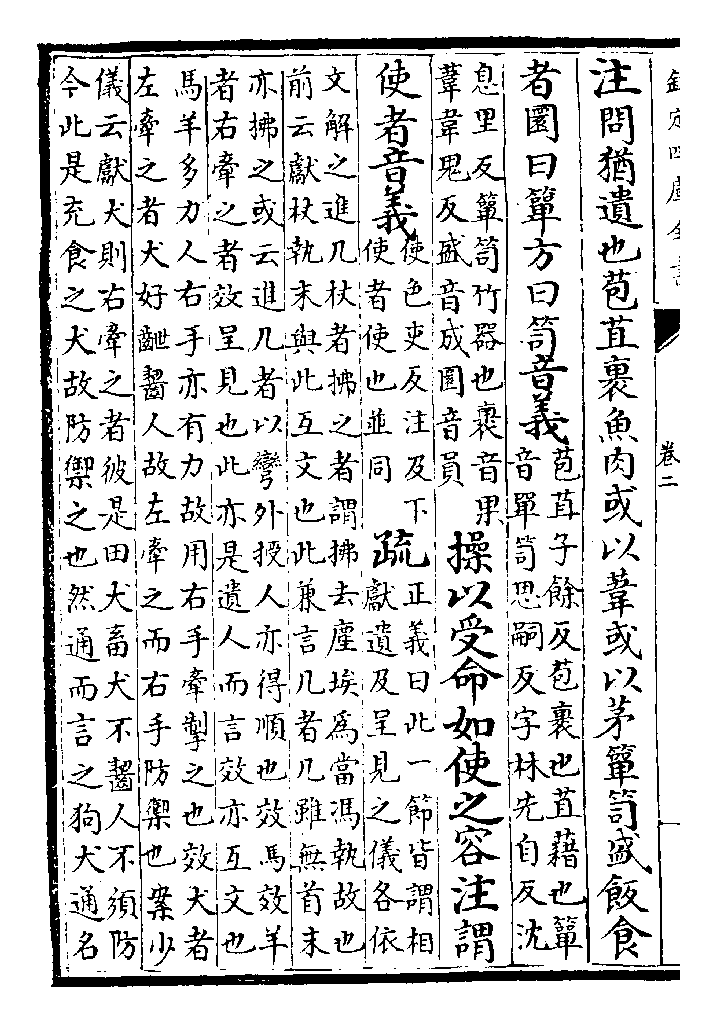 欽定四庫全書
卷二
注問猶遺也苞苴裹魚肉或以葦或以茅簞笥盛飯食
者圜曰簞方曰笥音義
苞苴子餘反苞裹也苴藉也簞
音單笥思嗣反字林先自反沈
息里反簞笥竹器也裹音果
葦韋鬼反盛音成圜音員
操以受命如使之容注謂
使者音義
使色吏反注及下
使者使也並同
疏
正義曰此一節皆謂相
獻遺及呈見之儀各依
文解之進几杖者拂之者謂拂去塵埃為當馮執故也
前云獻杖執末與此互文也此兼言几者几雖無首末
亦拂之或云進几者以彎外授人亦得順也效馬效羊
者右牽之者效呈見也此亦是遺人而言效亦互文也
馬羊多力人右手亦有力故用右手牽掣之也效犬者
左牽之者犬好齜齧人故左牽之而右手防禦也案少
儀云獻犬則右牽之者彼是田犬畜犬不齧人不須防
今此是充食之犬故防禦之也然通而言之狗犬通名